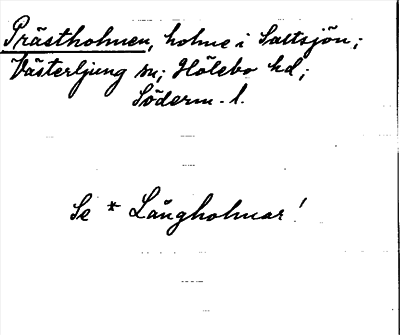 Prästholmen, holme i Saltsjön;
Västerljung sn; Hölebo hd;
Söderm. l.
Se * Långholmar!